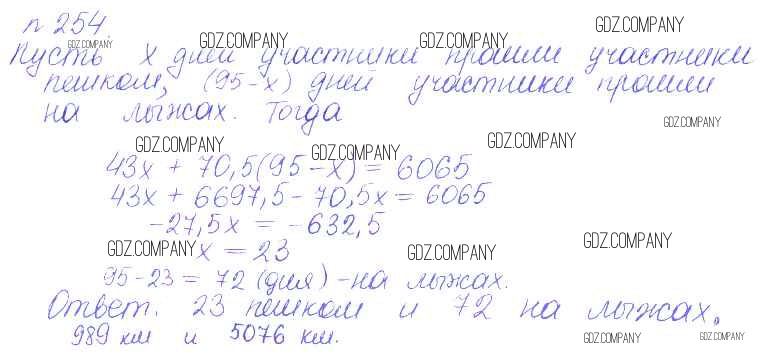 n 254.
Пусть x дней участники прошли участники
пешком, (95-x) дней участники прошли
на лыжах. Тогда
43x + 70,5(95-x) = 6065
43x + 6697,5 - 70,5x = 6065
-27,5x = -632,5
x = 23
95-23 = 72 (дня) - на лыжах.
Ответ. 23 пешком и 72 на лыжах.
989 км и 5076 км.
GDZ.COMPANY
GDZ.COMPANY
GDZ.COMPANY
GDZ.COMPANY
GDZ.COMPANY
GDZ.COMPANY
GDZ.COMPANY
GDZ.COMPANY
GDZ.COMPANY
GDZ.COMPANY
GDZ.COMPANY
GDZ.COMPANY
GDZ.COMPANY